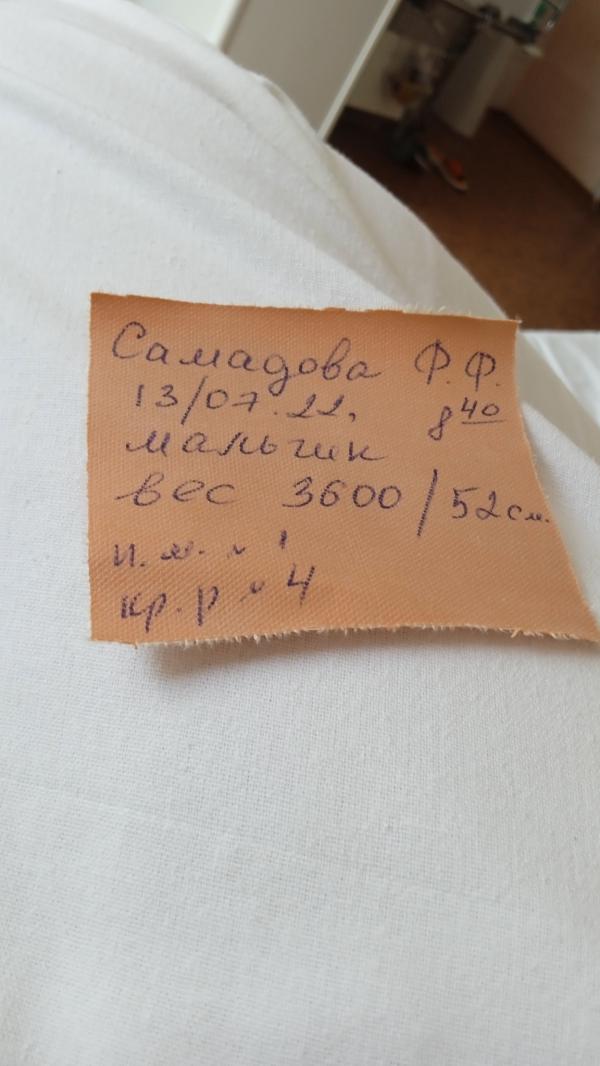 Самадова Ф.Ф.
13/07.22. 8 40
мальчик
вес 3600/52см.
и.м. № 1
кр.р № 4